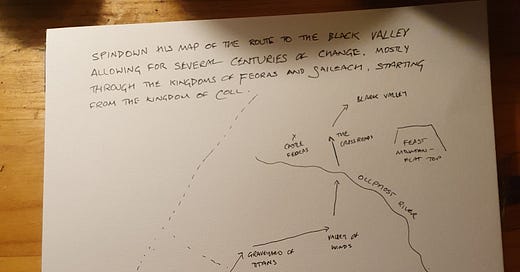 SPINDOWN HIS MAP OF THE ROUTE TO THE BLACK VALLEY
ALLOWING FOR SEVERAL CENTURIES OF CHANGE. MOSTLY
THROUGH THE KINGDOMS OF FEORAS AND SAILEACH, STARTING
FROM THE KINGDOM OF COLL.
BLACK VALLEY
X
CASTLE
FEORAS
THE
CROSSROADS
FEAST
MOUNTAIN-
FLAT TOP
OLLPHOST RIVER
GRAVEYARD OF
TITANS
VALLEY OF
WINDS